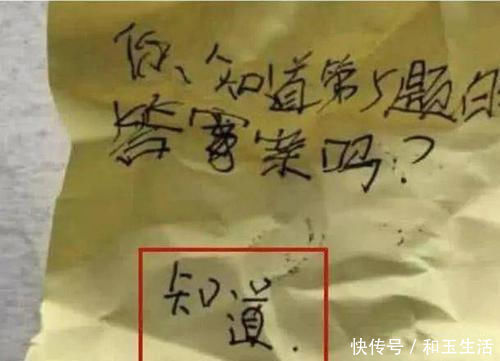 你知道第5题的
答案吗?
知
道.
快传号/和玉生活